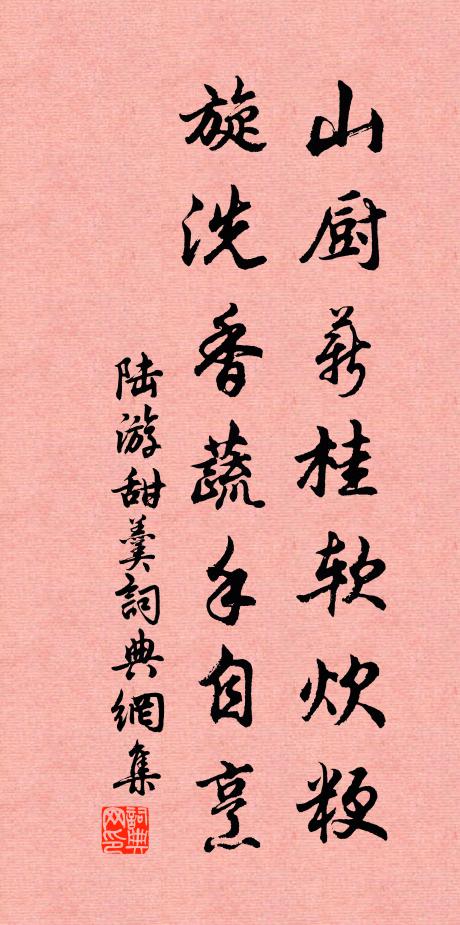 山厨薪桂软炊粳
旋洗香蔬手自烹
陆游甜羹詞典網集
詞典网印